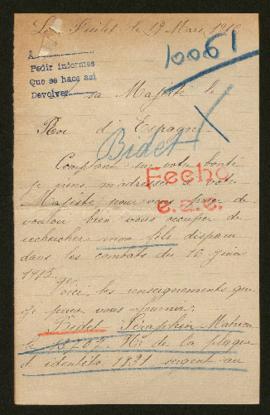 Le Feidet le 19 Mars 1916
10061
A
Pedir informes
Que se hace asi
Devolver
sa Majesté le
Roi d'Espagne
Bidet X
Comptant sur votre bonté
je viens m'adresser à votre
Majesté pour vous prier de
vouloir bien vous occuper de
rechercher mon fils disparu
dans les combats du 16 Juin
1915.
Fecho
Voici les renseignements que
je peux vous fournir
Séraphin
No de la plaque
d'identité 1831 sergent au